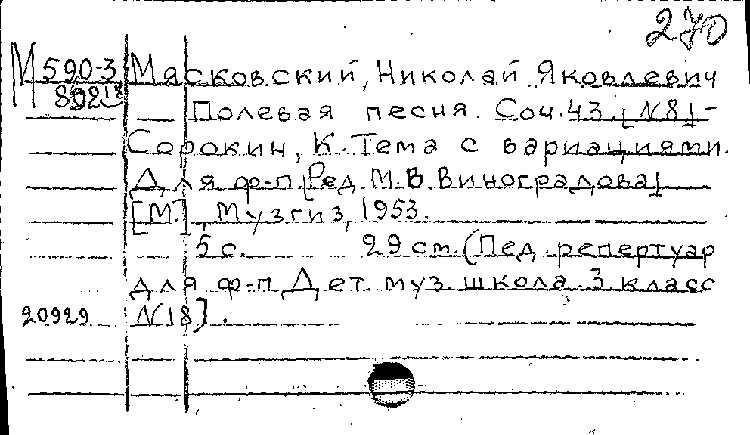 270
М590-3 Мясковский, Николай Яковлевич
892 18 — Полевая песня. Соч. 43. [№8] -
Сорокин, К. Тема с вариациями.
Для ф-п. [Ред. М.В. Виноградова]
[М.], Музгиз, 1953.
5 с. 29 см. (Пед. репертуар
для ф-п. Дет. муз. школа. 3 класс
20929 №18].